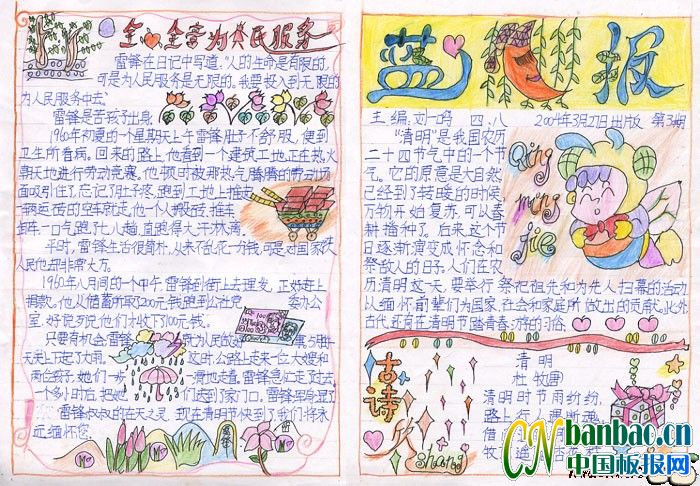 全心全意为人民服务
雷锋在日记中写道,"人的生命是有限的,
可是为人民服务是无限的。我要投入到无限的
为人民服务中去。
雷锋是苦孩子出身
1960年初夏的一个星期天上午雷锋肚子不舒服,便到
卫生所看病。回来的路上,他看到一个建筑工地正在热火
朝天地进行劳动竞赛。他顿时被那热气腾腾的劳动场
面吸引住了,忘记了肚子疼,跑到工地上推起
一辆运砖的空车就走,他一个人搬砖,推车
一口气跑了七八趟,直跑得大汗淋漓。
平时,雷锋生活很简朴,从来不乱花一分钱,可是对国家
人民他却非常大方。
1960年八月间的一个中午,雷锋到街上去理发,正好赶上
捐款。他从储蓄所取200元钱跑到公社党 委办公
室,好说歹说他们才收下100元钱。
只要有机会雷锋 为人民做好
天天上下定了大雨。 这时公路上走来一位大嫂和
两位孩子,她们一步 滑地走着,雷锋急忙走了过去,
一个多小时后,把她 们送到了家门口,雷锋浑身湿了
雷锋叔叔的在天之灵,现在清明节快到了我们将永
远缅怀您。
蓝月报
主编:刘一鸣 四、八 2009年3月27日出版 第3期
"清明"是我国农历
二十四节气中的一个节
气。它的原意是大自然
已经到了转暖的时候
万物开始复苏,可以春
耕播种了。后来,这个节
日逐渐演变成怀念和
祭故人的日子。人们在农
历清明这一天,要举行祭祀祖先和为先人扫墓的活动
以缅怀前辈们为国家、社会和家庭所做出的贡献。此外
古代,还有在清明节踏青春游的习俗。
Qing
ming
jie
古诗欣
Shang
清明
杜牧
清明时节雨纷纷,
路上行人
借
牧
CN banbao.cn
中国板报网